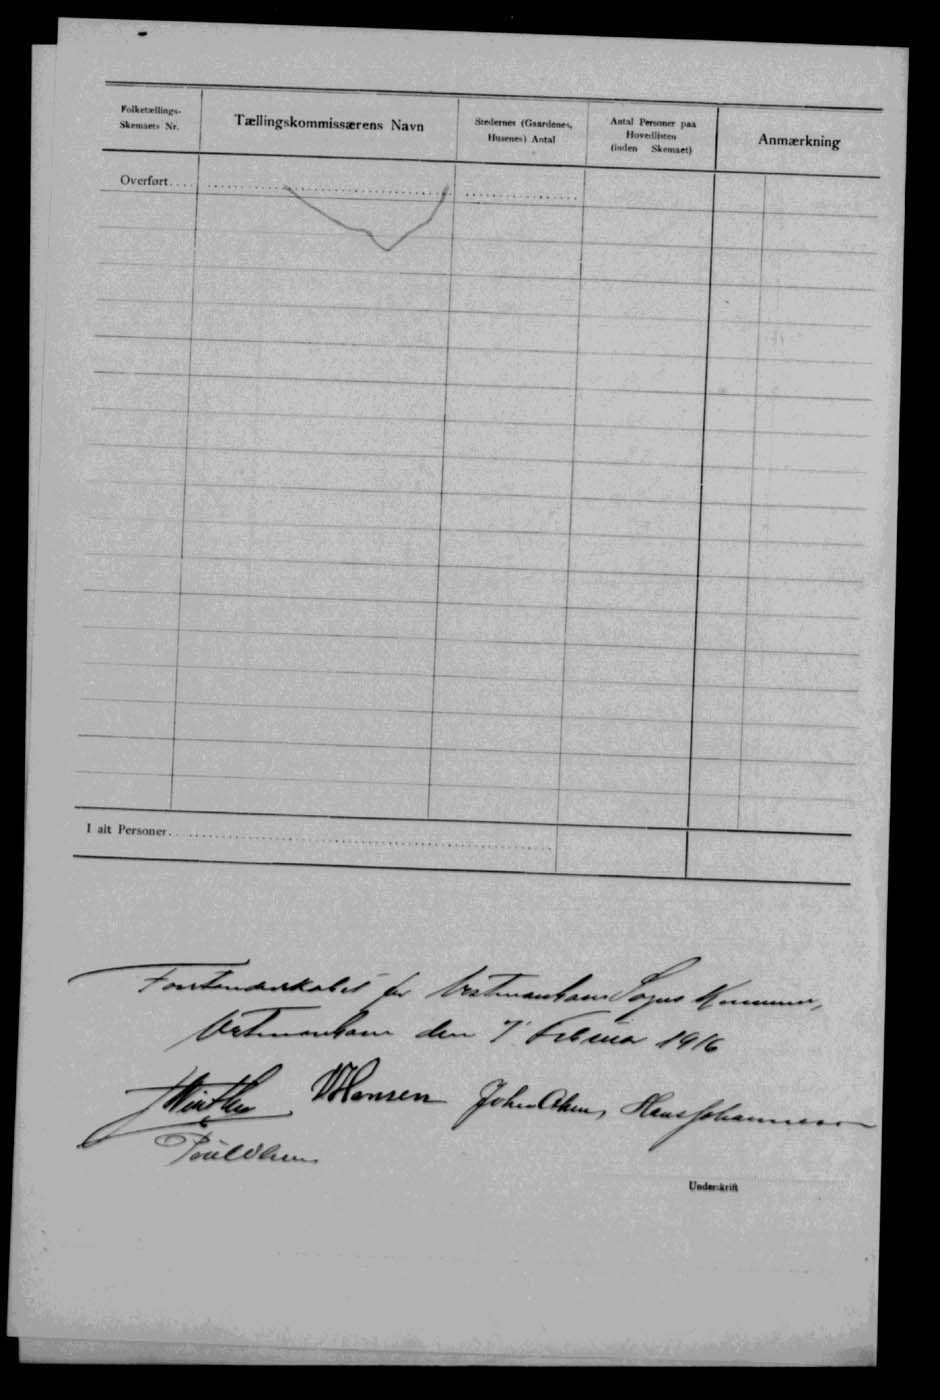 Folketællings-
Skemaets Nr.
Tællingskommissærens Navn
Stedernes (Gaardenes,
Husenes) Antal
Antal Personer paa
Hovedlisten
(inden Skemaet)
Anmærkning
Overført
I alt Personer
Forstanderskabet for Vestmanhavn Sogns Kommune,
Vestmanhavn den 7' Februar 1916
Winther VHansen John Olsen, Hans Johannesen
Poul Olsen
Underskrift